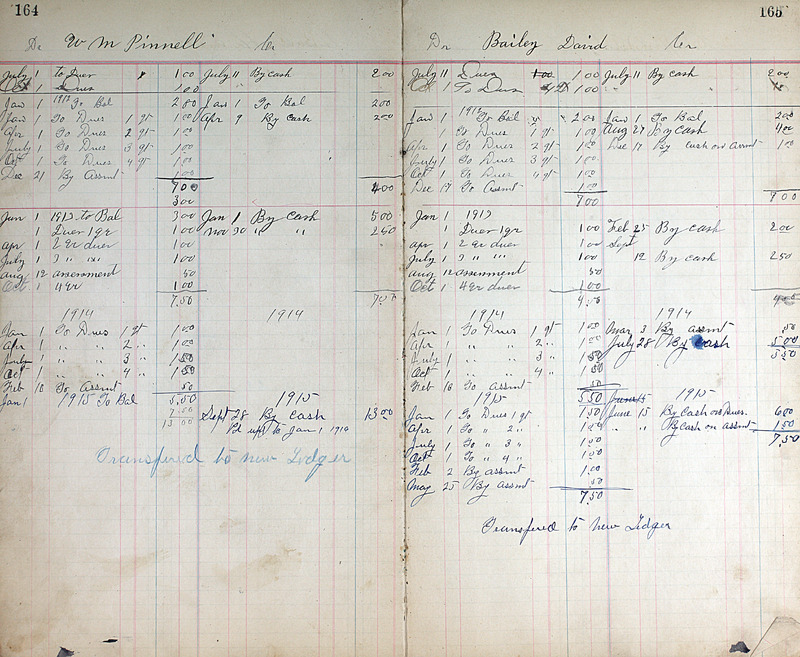 164
Dr W M Pinnell Cr
July 1 to Duer 1 00 July 11 By cash 2 00
Oct 1 Dues 1 00
Jan 1 1912 To Bal 2 00 Jan 1 To Bal 2 00
Jan 1 To Dues 1 qr 1 00 Apr 9 By Cash 2 00
Apr 1 To Dues 2 qr 1 00
July 1 To Dues 3 qr 1 00
Oct 1 To Dues 4 qr 1 00
Dec 21 By Assmt 1 00
7 00 4 00
3 00
Jan 1 1913 to Bal 3 00 Jan 1 By cash 5 00
1 Duer 1 qr 1 00 Nov 30 " " 2 50
apr 1 2 qr duer 1 00
July 1 3 " " 1 00
aug 12 assessment 50
Oct 1 4 qr 1 00
7.50 7 50
1914 1914
Jan 1 To Dues 1 qr 1 00
Apr 1 " " 2 " 1 00
July 1 " " 3 " 1 50
Oct 1 " " 4 " 1 50
Feb 10 To Assmt 50
Jan 1 1915 To Bal 5.50 1915
7.50 Sept 28 By Cash 13 00
13 00 Pd up to Jan 1, 1916
Transfered to new Ledger
165
Dr Bailey David Cr
July 11 Dues 1 00 1 00 July 11 By cash 2 00
Oct 1 To Dues 1 00
1912
Jan 1 To Bal 2 00 Jan 1 To Bal 2 00
1 To Dues 1 qr 1 00 Aug 27 By cash 4 00
Apr 1 To Dues 2 qr 1 00 Dec 17 By cash on Assmt 1 00
July 1 To Dues 3 qr 1 00
Oct 1 To Dues 4 qr 1 00
Dec 17 To Assmt 1 00
7 00 7 00
Jan 1 1913
1 Duer 1 qr 1 00 Feb 25 By cash 2 00
apr 1 2 qr duer 1 00 Sept
July 1 3 " " 1 00 12 By Cash 2 50
aug 12 assessment 50
Oct 1 4 qr duer 1 00
4.50
1914 1914
Jan 1 To Dues 1 qr 1 00 Mar 3 By assmt .50
Apr 1 " " 2 " 1 00 July 28 By Cash 5 00
July 1 " " 3 " 1 50 5 50
Oct 1 " " 4 " 1 50
Feb 10 To Assmt 50
1915 5 50 June 15 1915
Jan 1 To Dues 1 qr 1 50 June 15 By Cash on Dues. 6 00
Apr 1 To " 2 " 1 50 " " By cash on assmt 1 50
July 1 To " 3 " 1 50 7.50
Oct 1 To " 4 " 1 50
Feb 2 By assmt 1.00
May 25 By assmt .50
7.50
Transfered to new Ledger